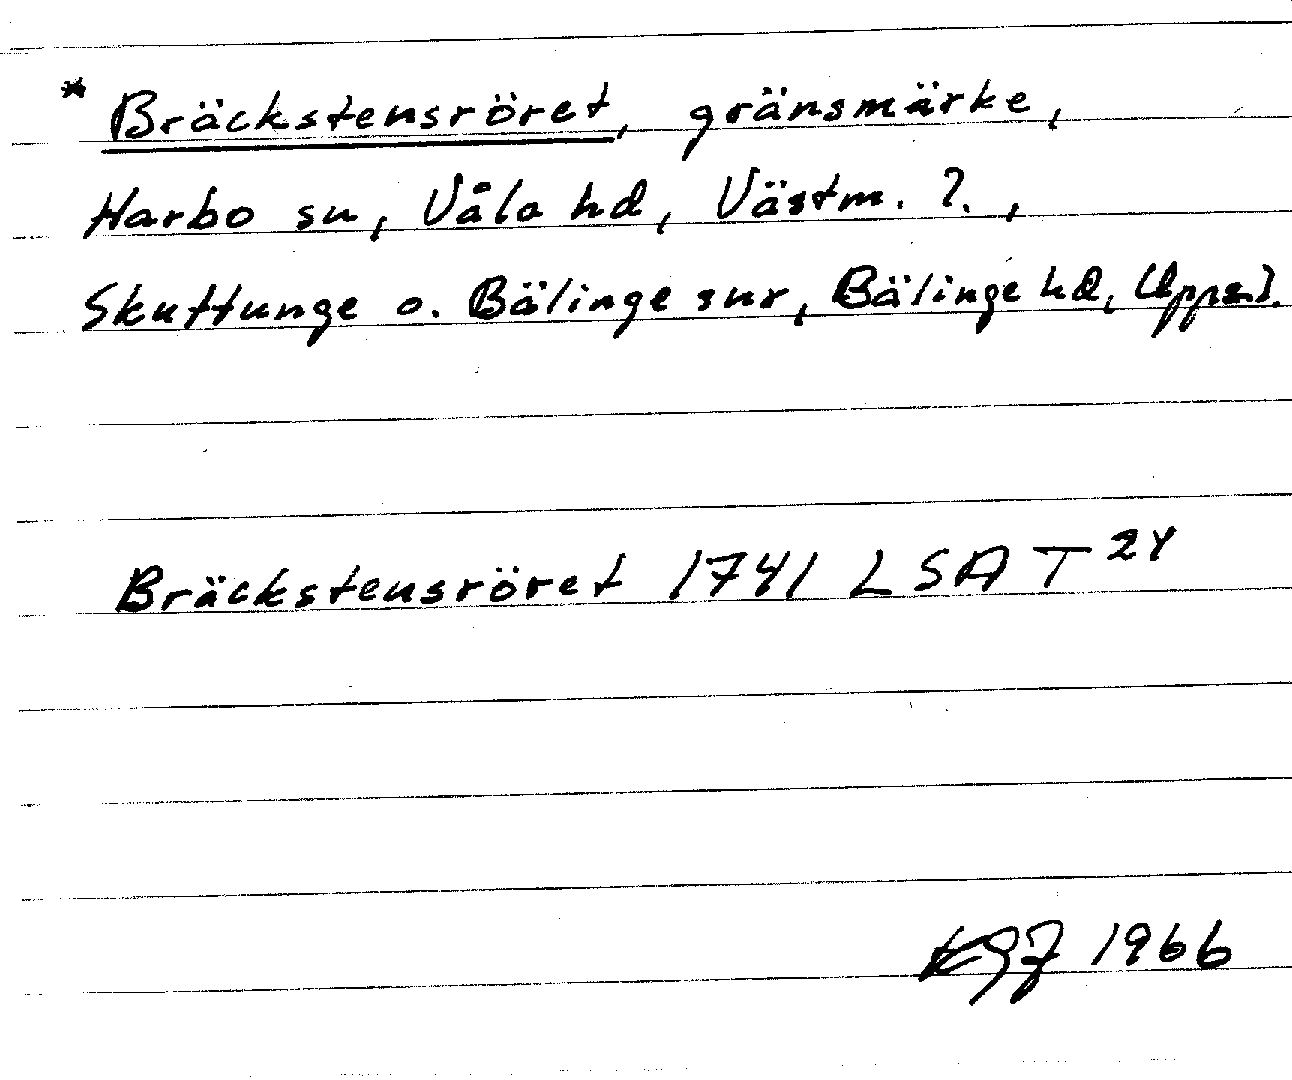 * Bräckstensröret, gränsmärke,
Harbo sn, Våla hd, Västm. ?.,
Skuttunge o. Bälinge snr, Bälinge hd, Uppsal.
Bräckstensröret 1741 LSA T 24
KGJ 1966